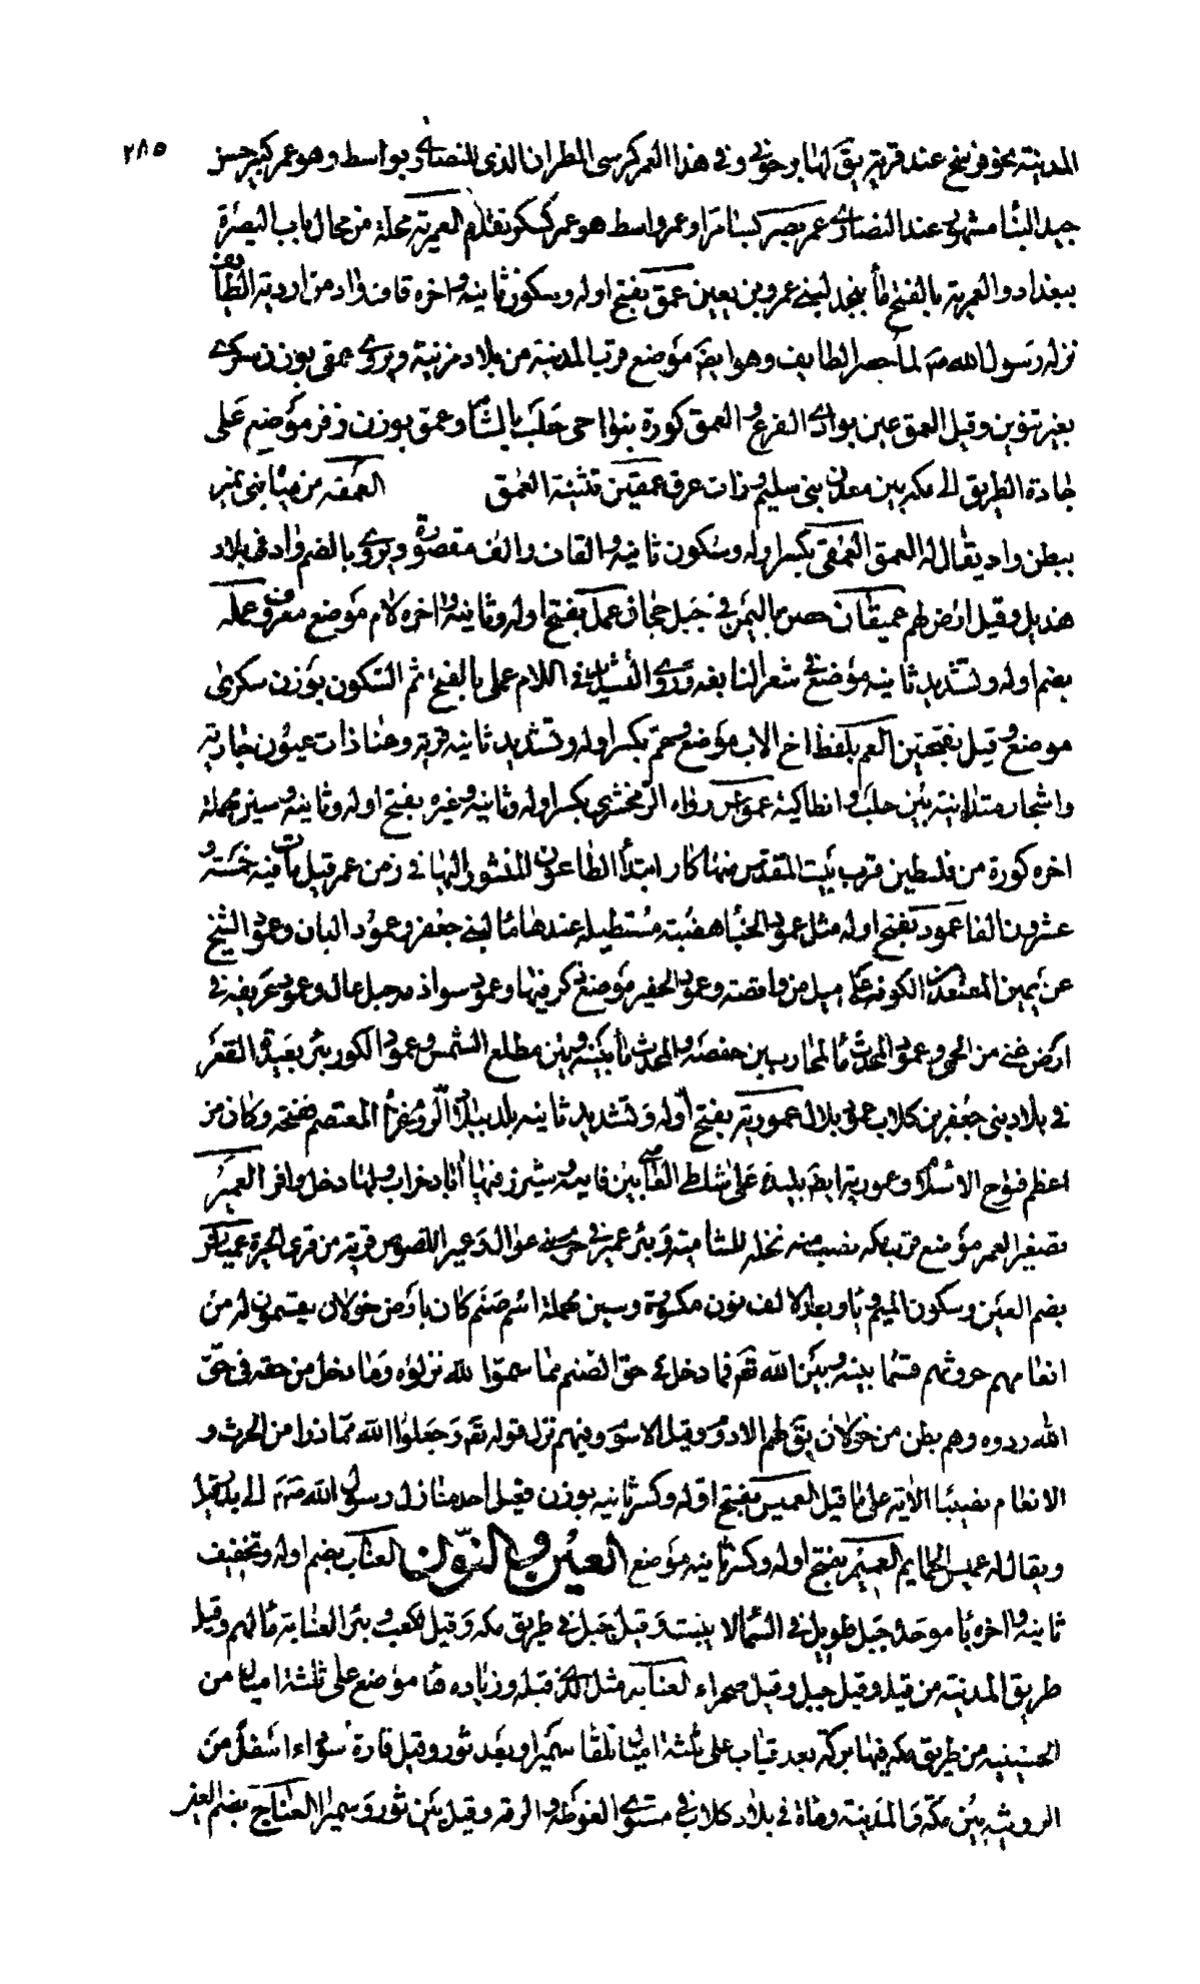 ٢٨٥
المدينة نحو فرسخ عند قرية يق لها برجونى وفى هذا العمر كرسى المطران الذى للنصارى بواسط وهو عمر كبير حسن
جيد البنا مشهور عند النصارى عمر نصر كبسامرا وعمر واسط هو عمر كسكر وتقدم العمرية محلة من محال باب البصرة
ببغداد والعمرية بالفتح ماء بنجد لبنى عمرو بن قعين عمق بفتح اوله وسكون ثانيه واخره قاف واد من اودية الطائف
نزله رسول الله صم لما حصر الطايف وهو ايضا موضع قرب المدينة من بلاد مزينة ويروى عمقى بوزن سكرى
بغير تنوين وقيل العمق عين بوادى الفرع والعمق كورة بنواحى حلب بالشام وعمق بوزن زفر موضع على
جادة الطريق الى مكة بين معدن بنى سليم وذات عرق عمقين تثنية العمق العمقه من مياه بنى نمير
ببطن واد يقال له العمق العمقى بكسر اوله وسكون ثانيه والقاف والف مقصورة ويروى بالضم واد فى بلاد
هذيل وقيل ارض لهم عميقان حصن باليمن فى جبل جحاف عمل بفتح اوله وثانيه واخره لام موضع معروف عمله
بضم اوله وتشديد ثانيه موضع فى شعر النابغه وروى التشديد فى اللام عملى بالفتح ثم السكون بوزن سكرى
موضع وقيل بفتحتين العم بلفظ اخ الاب موضع وعم بكسر اوله وتشديد ثانيه قرية وغنا ذات عيون جارية
واشجار متدانية بين حلب وانطاكية عمواس رواه الزمخشرى بكسر اوله وثانيه وغيره بفتح اوله وثانيه وسين مهملة
اخره كورة من فلسطين قرب بيت المقدس منها كان ابتدا الطاعون المنشور اليها فى زمن عمر قيل مات فيه خمسة و
عشرون الفا عمود بفتح اوله مثل عمود الخبا هضبة مستطيلة عندها ما لبنى جعفر وعمود البان وعمود الشيخ
عن يمين المصعد من الكوفه على ميل من واقصه وعمود الحفير موضع ذكر فيها وعمود سوادمه جبل عال وعمود غريفه فى
ارض غنى من الحمى وعمود المحدث ما لمحارب بين حفصة والمحدث ما بينه وبين مطلع الشمس وعمود الكور بئر بعيدة القعر
فى بلاد بنى جعفر بن كلاب عمود بلال عمورية بفتح اوله وتشديد ثانيه بلد ببلاد الروم غزاه المعتصم ففتحه وكان من
اعظم فتوح الاسلام وعمورية ايضا بليدة على شاطى العاصى بين فاميه وشيزر فيها اثار خراب ولها دخل وافر العمير
تصغير العمر موضع قرب مكه يصب منه نخله للشامية وبئر عمير فى حزم بنى عوال الدعير اللصوص قرية من قرى الحيرة عميانس
بضم العين وسكون الميم ويا وبعد الالف نون مكسورة وسين مهملة اسم صنم كان بارض خولان يقسمون له من
انعامهم حروثهم قسما بينه وبين الله تعم فما دخل فى حق الصنم مما سموا لله تركوه وما دخل من حقه فى حق
الله ردوه وهم بطن من خولان يق لهم الادوم وقيل الاسوم وفيهم نزل قوله تعم وجعلوا الله مما ذرا من الحرث و
الانعام نصيبا الاية على ما قيل العميس بفتح اوله وكسر ثانيه بوزن فعيل احد منازل رسول الله صم الى بدر قبل
ويقال له عميس الحمايم العميم بفتح اوله وكسر ثانيه موضع العين والنون العناب بضم اوله وتخفيف
ثانيه واخره با موحدة جبل طويل فى السما لا ينبت وقيل جبل فى طريق مكه وقيل لكعب وبئر العنابة ما لهم وقيل
طريق المدينة من فيد وقيل جبل وقيل صحراء العنابة مثل الذى قبله وزياده ها موضع على ثلثة اميال من
الحسينيه من طريق مكه فيها بركة بعد قباب على ثلثة اميال تلقا سميرا وبعد ثور وقيل قارة سودا اسفل من
الرويثه بين مكة والمدينة وماة فى بلاد كلاب فى مستوى الغوطه والرقه وقيل بين ثور وسميرا العناج بضم العين